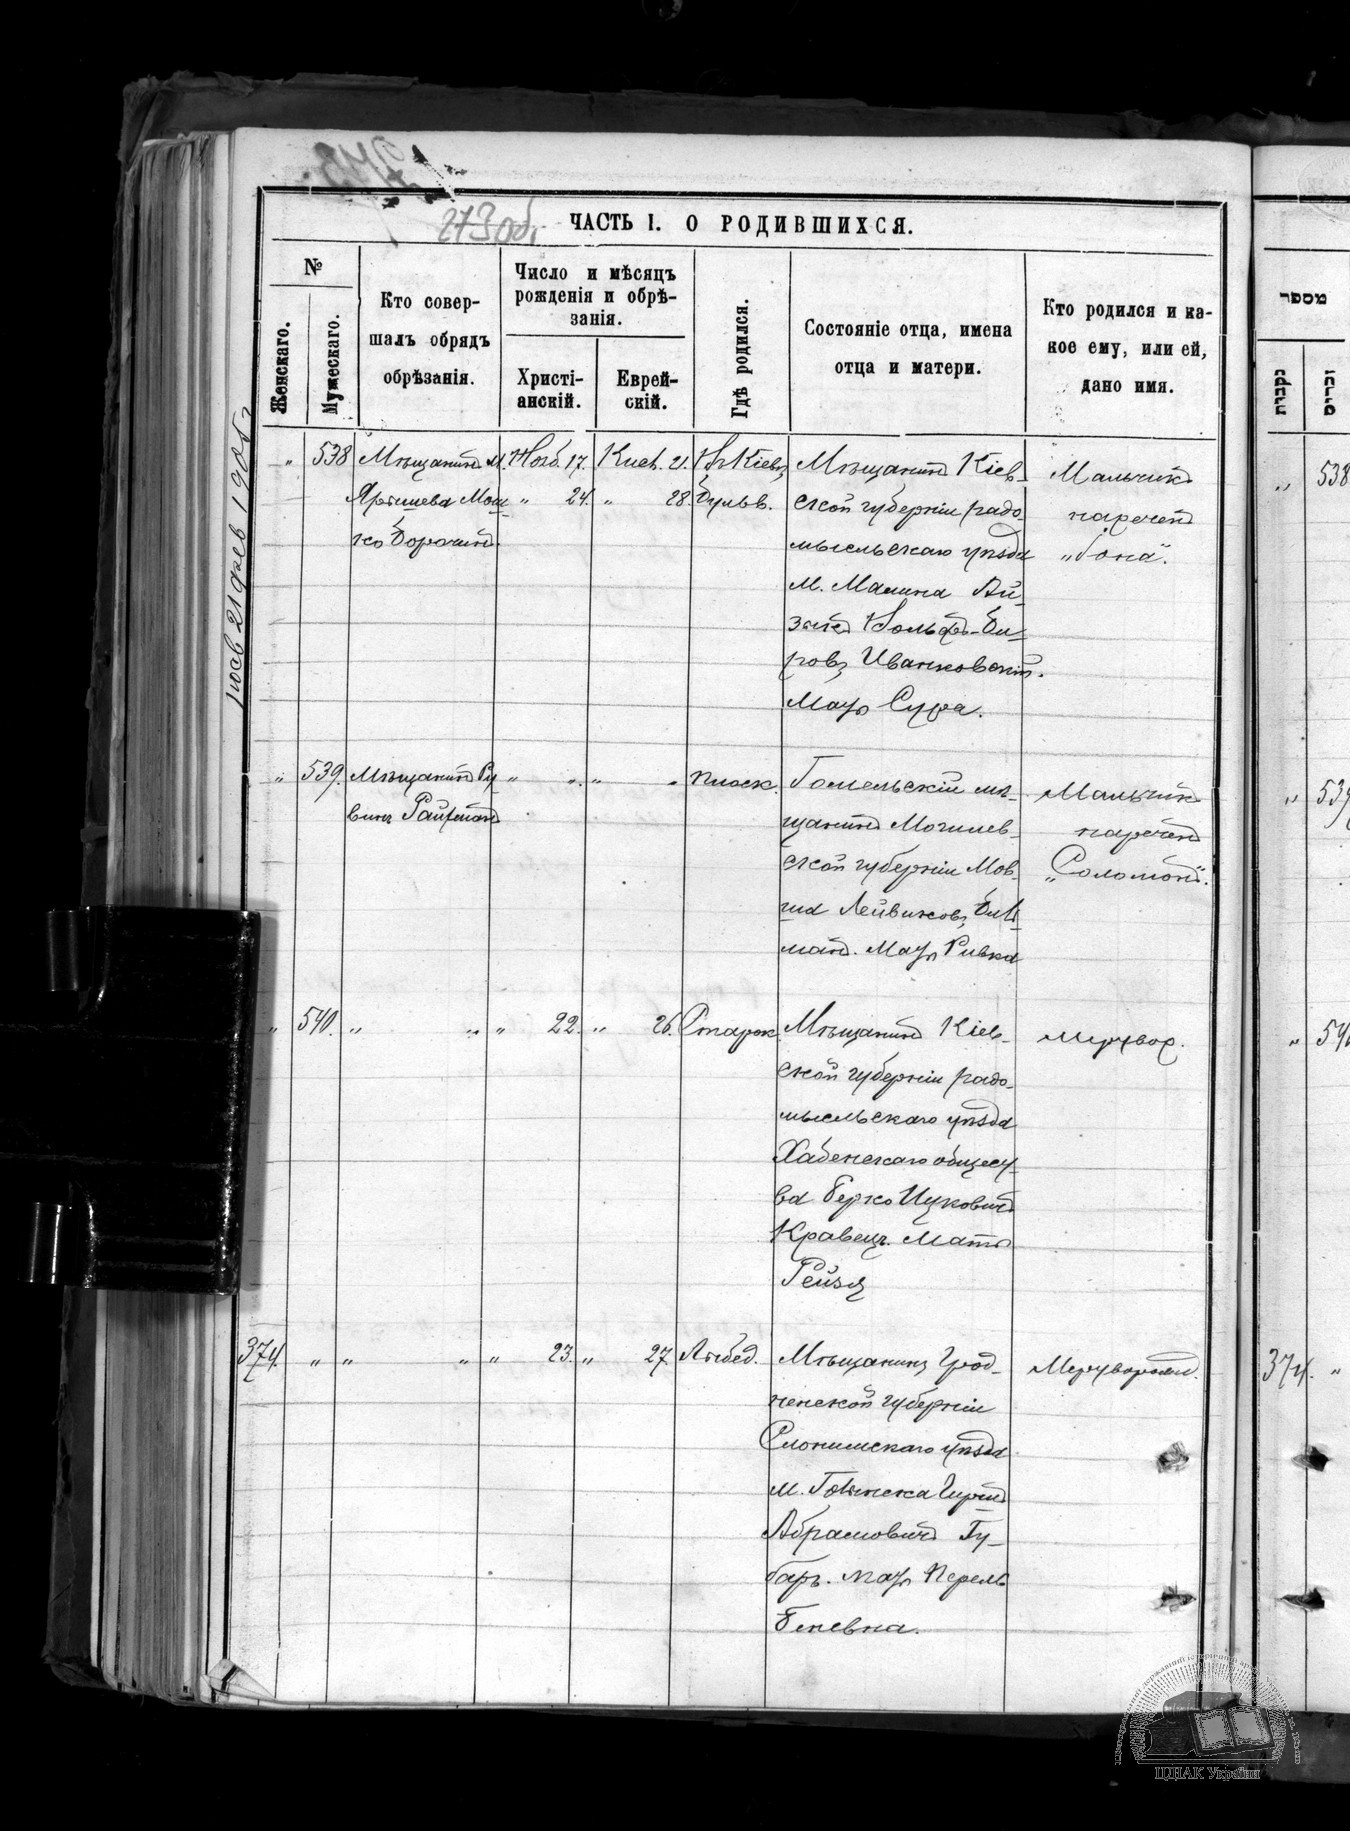 273 об.
ЧАСТЬ I. О РОДИВШИХСЯ.
№
Женскаго.
Мужескаго.
Кто совер-
шалъ обрядъ
обрѣзанія.
Число и мѣсяцъ
рожденія и обрѣ-
занія.
Христі-
анскій.
Еврей-
скій.
Гдѣ родился.
Состояніе отца, имена
отца и матери.
Кто родился и ка-
кое ему, или ей,
дано имя.
" 538
Мѣщанинъ м.
Мош-
ко
Нояб. 17.
" 24.
21.
" 28.
Въ Кіевѣ,
Бульв.
Мѣщанинъ Кіев-
ской губерніи радо-
мысльскаго уѣзда
м. Малина Ай-
зикъ Вольфъ-Бе-
ровъ Иванковскій.
Мать Сура.
Мальчикъ
нареченъ
" 539.
Мѣщанинъ Ру-
винъ
" "
" "
Плоск.
Гомельскій мѣ-
щанинъ Могилев-
ской губерніи Мов-
ша Лейвиковъ
Мать Ривка
Мальчикъ
нареченъ
„Соломонъ".
" 540.
" "
" 22.
" 26.
Старок.
Мѣщанинъ Кіев-
ской губерніи радо-
мысльскаго уѣзда
Хабенскаго общест-
ва Берко Ицковичъ
Кравецъ. Мать
Рейзя
Мертвор.
374. "
" "
" 23.
" 27.
Лыбед.
Мѣщанинъ Грод-
ненской губерніи
Слонимскаго уѣзда
м.
Абрамовичъ Гу-
барь. мать Перель
Беневна.
Мертворожд.
מספר
נקבות
זכרים
" 538
" 539
" 540
374. "
ЦДІАК України